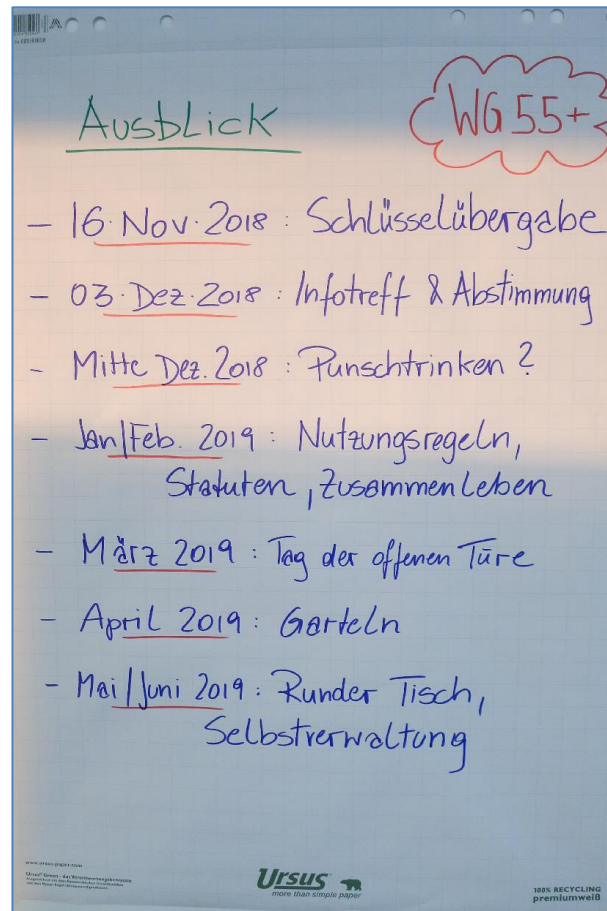 Ausblick
WG 55+
- 16. Nov. 2018 : Schlüsselübergabe
- 03. Dez. 2018 : Infotreff & Abstimmung
- Mitte Dez. 2018 : Punschtrinken ?
- Jan/Feb. 2019 : Nutzungsregeln,
Statuten, Zusammenleben
- März 2019 : Tag der offenen Türe
- April 2019 : Garteln
- Mai/Juni 2019 : Runder Tisch,
Selbstverwaltung
www.ursus-paper.com
Ursus
more than simple paper
100% RECYCLING
premiumweiß